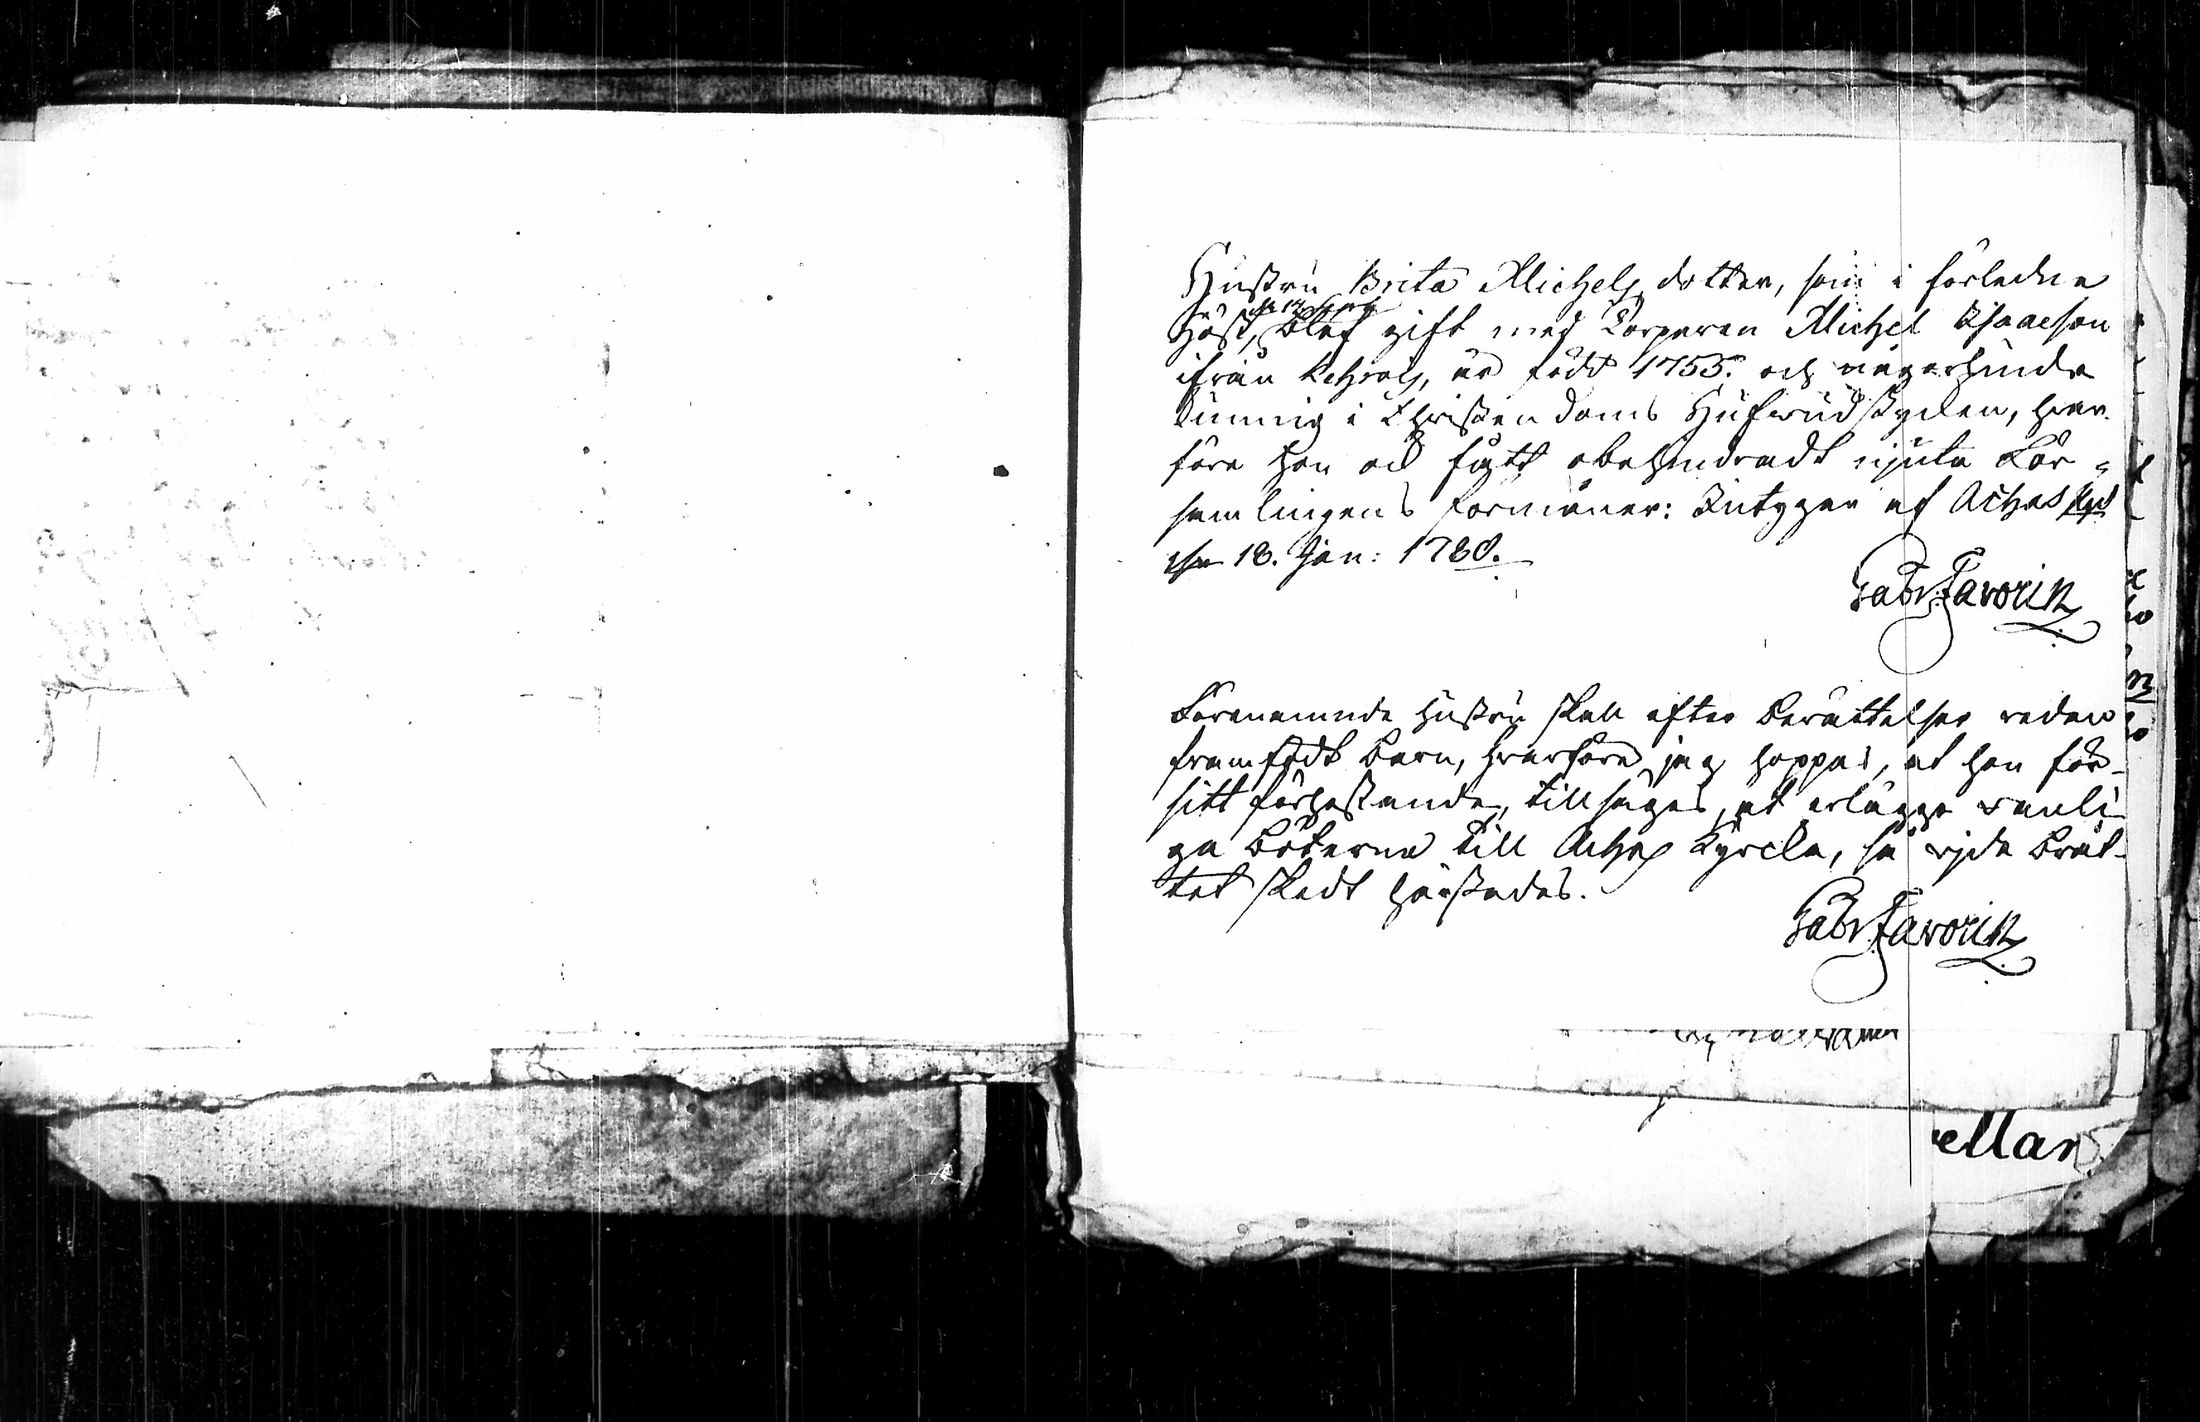 Hustru Brita Michelsdotter, som i förledne
höst, blef gift med Torparen Michel Isaacson
ifrån Rehrois, är född 1755. och någorlunda
kunnig i Christendoms Hufwudstycken, hwar-
före hon ock fått obehindradt njuta För-
samlingens förmåner: Intygar af Achas
18. Jan: 1780.
Gabr Favorin
Förenämnde Hustru skall efter berättelser redan
framfödt barn, hwarföre jag hoppas, at hon för
sitt förhastande, tillsäges, at erlägga wanli-
ga böterna till Achas Kyrcka, så wida brät-
tet skedt härstädes.
Gabr Favorin
ellan